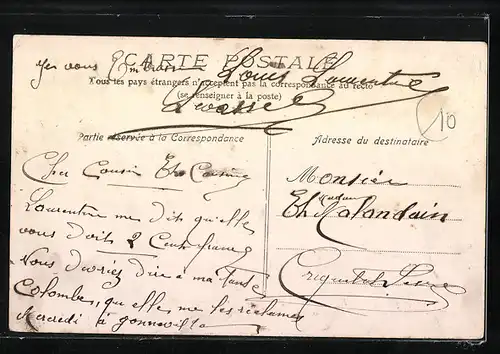 CARTE POSTALE
Tous les pays étrangers n'acceptent pas la correspondance au recto
(se renseigner à la poste)
Partie réservée à la Correspondance
Adresse du destinataire
10
Cher Cousin et Cousine
Laurentine me dit qu'elle
vous doit 2 Cent francs
Vous devriez dire à ma tante
Colombe, qu'elle me les réclame
Mercredi à gonneville
Je vous Embrasse
Louis Laurentine
Monsieur
Et Madame
Malandain
Criquetot